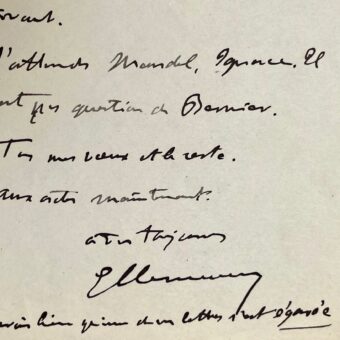 J'attends Mandel, Ignace. Il
pas question de Bernier.
Tous mes vœux et le reste.
aux actes maintenant.
à toi toujours
GClemenceau
bien qu'une de ces lettres s'est égarée